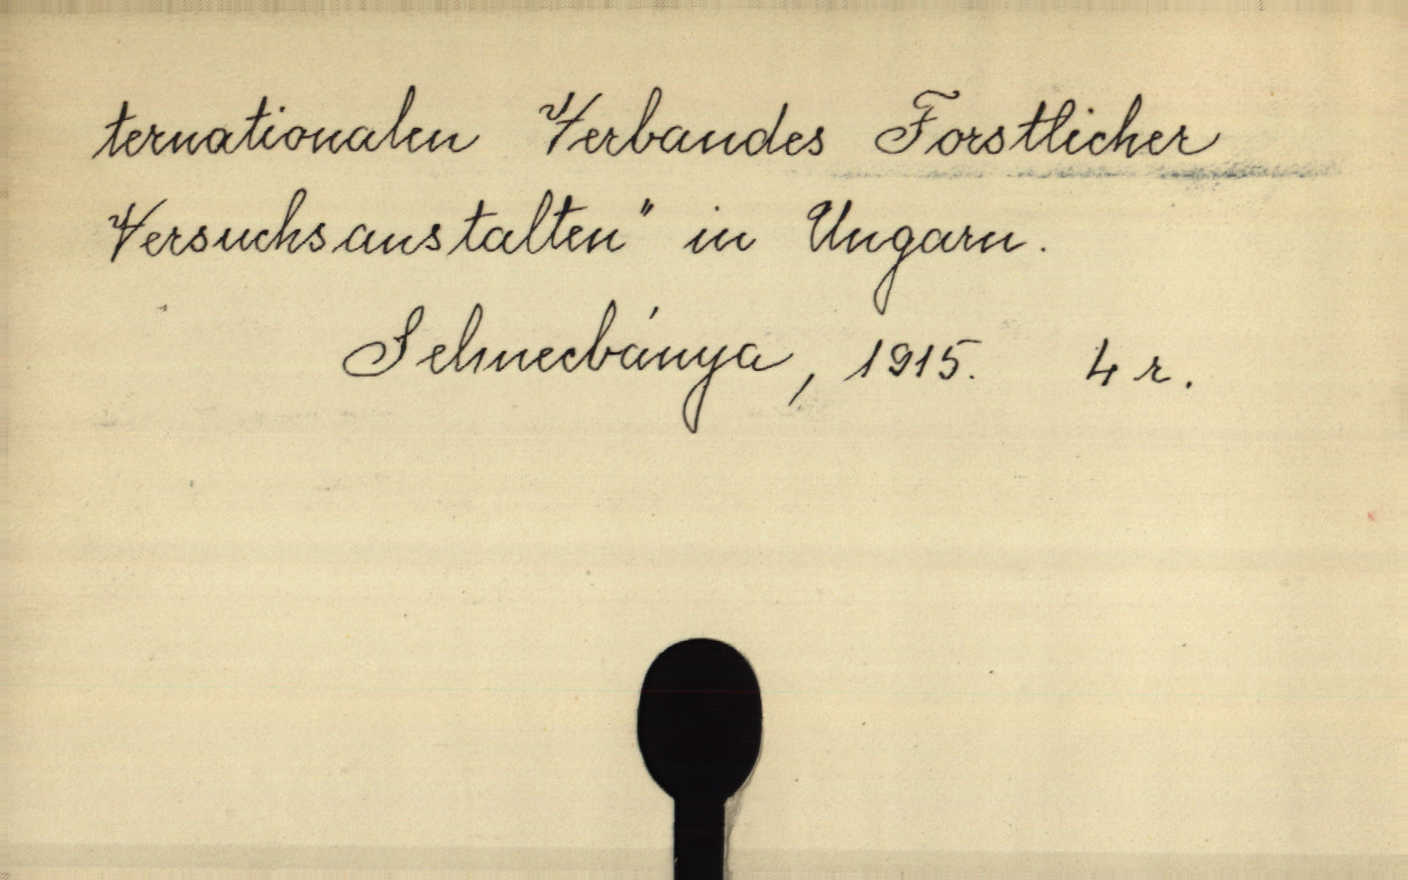 ternationalen Verbandes Forstlicher
Versuchsanstalten" in Ungarn.
Selmecbánya, 1915. 4 r.